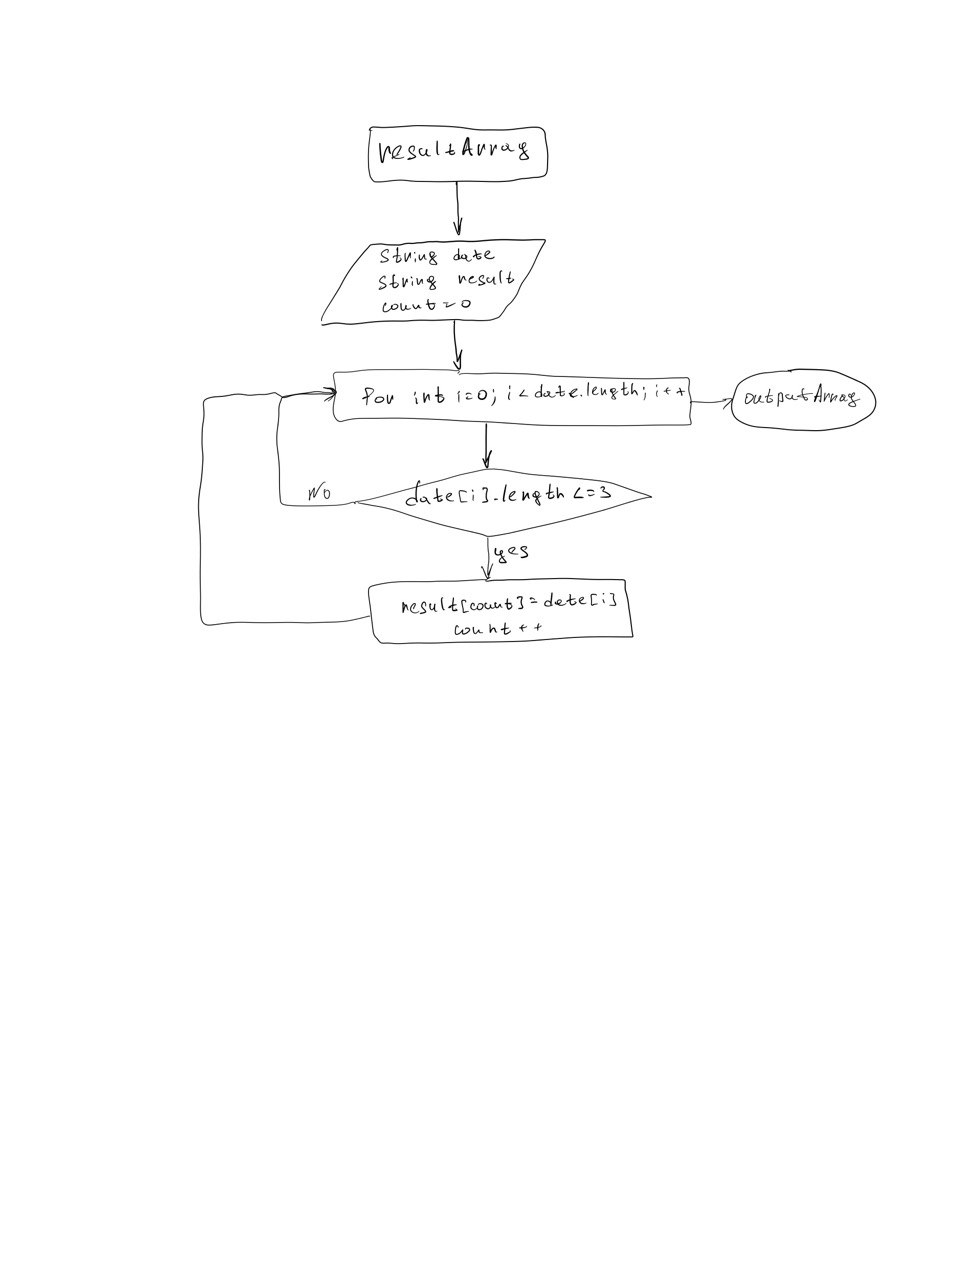 resultArray
String date
String result
count = 0
for int i=0; i < date.length; i++
outputArray
date[i].length <= 3
No
yes
result[count] = date[i]
count++